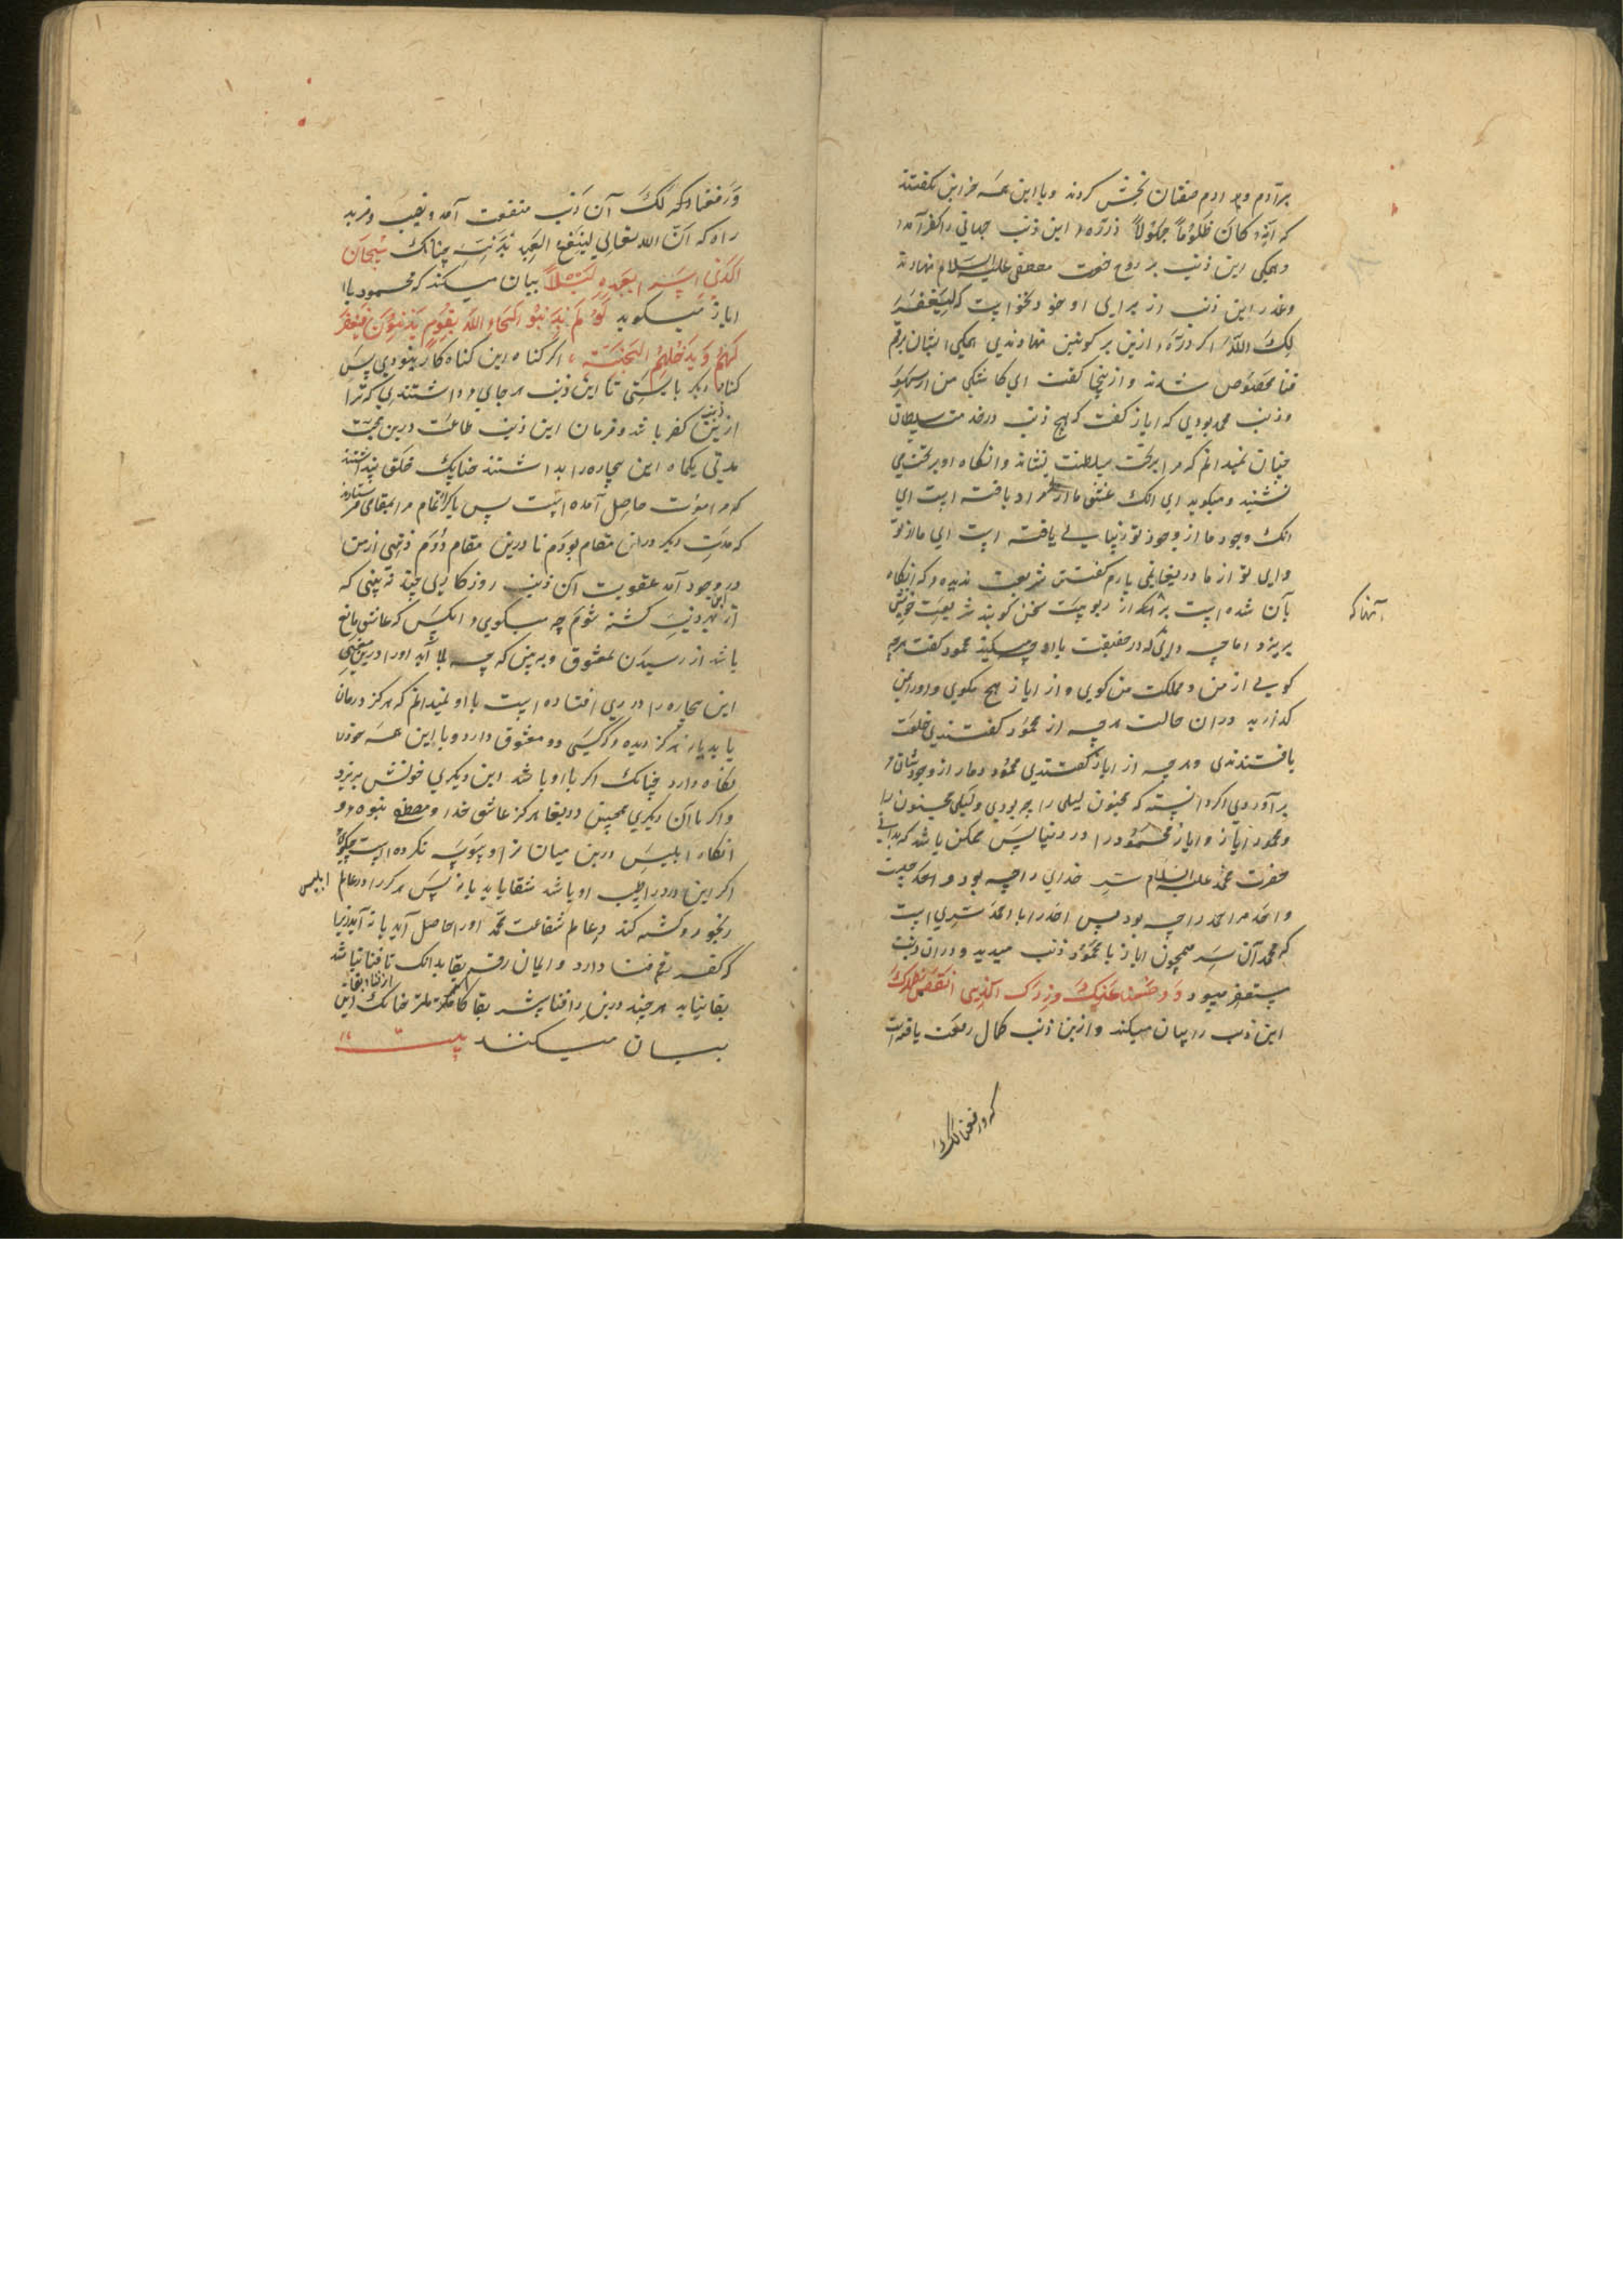 بر آدم و بر آدم صفتان بخش کردند و با این همه حزاین نکفتند
که انه کان ظلوما جهولا ذره این ذنب جهانی را کفر آمد
و همکی این ذنب بر روح حضرت مصطفی علیه السلام نهادند
و عذر این ذنب از برای او خود نخواست که لیغفر
لک الله اکر ذره ازین بر کونین نهادندی همکی ایشان برقم
فنا مخصوص شدند و ازینجا کفت ای کاشکی من از سهو
و ذنب محمد بودی که ایاز کفت که هیچ ذنب ورای سلطان
چنان نمیدانم که مرا بر تخت سلطنت نشاند و انکاه او بر تخت می
نشیند و میکوید ای انک عشق ما از تو مراد یافته است ای
انک وجود ما از وجود تو زیبایی یافته است ای ما از تو
و ای تو از ما دریغا نمی یارم کفتن شریعت ندیده که انکاه
بان شده است بر انکه از ربوبیت سخن کویند شریعت خونش
آنها که
بریزد اما چه دانی که در حقیقت با او چه میکنند محمود کفت هرچه
کویی از من و مملکت من کوی و از ایاز هیچ مکوی و او را بمن
کذارید در ان حالت هرچه از محمود کفتندی خلعت
یافتندی و هرچه از ایاز کفتندی محمود دمار از وجود شان
بر آوردی اکر دانسته که مجنون لیلی را چه بودی و لیلی مجنون را
و محمود ایاز و ایاز محمود را در دنیا پس ممکن باشد که بدانی
حضرت محمد علیه السلام سر خدای را چه بود و احد چیست
و احد مر احمد را چه بود پس احد را با احمد سری است
که محمد آن سر همچون ایاز با محمود ذنب میدید و در ان ذنب
مستغفر میبود و وضعنا عنک وزرک الذی انقض ظهرک
این ذنب را بیان میکند و ازین ذنب کمال رفعت یافت
که ورفعنا لک
ورفعنا لک ذکرک آن ذنب منفعت آمد و نصیب و مزید
راه که ان الله تعالی لینفع العبد بذنبه چنانک سبحان
الذی اسرا بعبده لیلا بیان میکند که محمود با
ایاز میکوید لو لم تذنبوا لجاء الله بقوم یذنبون فیغفر
لهم و یدخلهم الجنة اکر کناه این کناه کار نبودی پس
کناه دیکر بایستی تا این ذنب بر جای داشتندی که ترا
ازین ذنب کفر باشد و فرمان این ذنب طاعت و دین محبت
مدتی یکماه این بیچاره را بداشتند چنانک خلق پنداشتند
که مرا موت حاصل آمده است پس باکراه تمام مرا بمقامی فرستادند
که مدت دیکر در ان مقام بودم تا درین مقام دوم ذنبی از من
در وجود آمد عقوبت آن ذنب روزکاری چند نه بینی که
از بهر این ذنب کشته شوم چه میکویی انکس که عاشق مانع
باشد از رسیدن بمعشوق و به بین که چه بلا آید او را درین معنی
این بیچاره را دردی افتاده است با او نمیدانم که هرکز درمان
یابد یا نه هرکز دیده که کسی دو معشوق دارد و با این همه خود را
نکاه دارد چنانک اکر با او باشد این دیکری خونش بریزد
و اکر با آن دیکری همچنین دریغا هرکز عاشق خدا و مصطفی نبوده
انکاه ابلیس درین میان ترا وسوسه نکرده است چکویی
اکر این درد را طبیب او باشد شفا یابد یا نه پس هرکرا در عالم ابلیس
رنجور و کشته کند در عالم شفاعت محمد او را حاصل آید یا نه آید زیرا
که کفر رقم فنا دارد و ایمان رقم بقا بدانک تا فنا نباشد
بقا نیاید هر چند درین راه فنا بیشتر بقا کاملتر چنانک این از فنا و بقا
بیان میکنند بیت